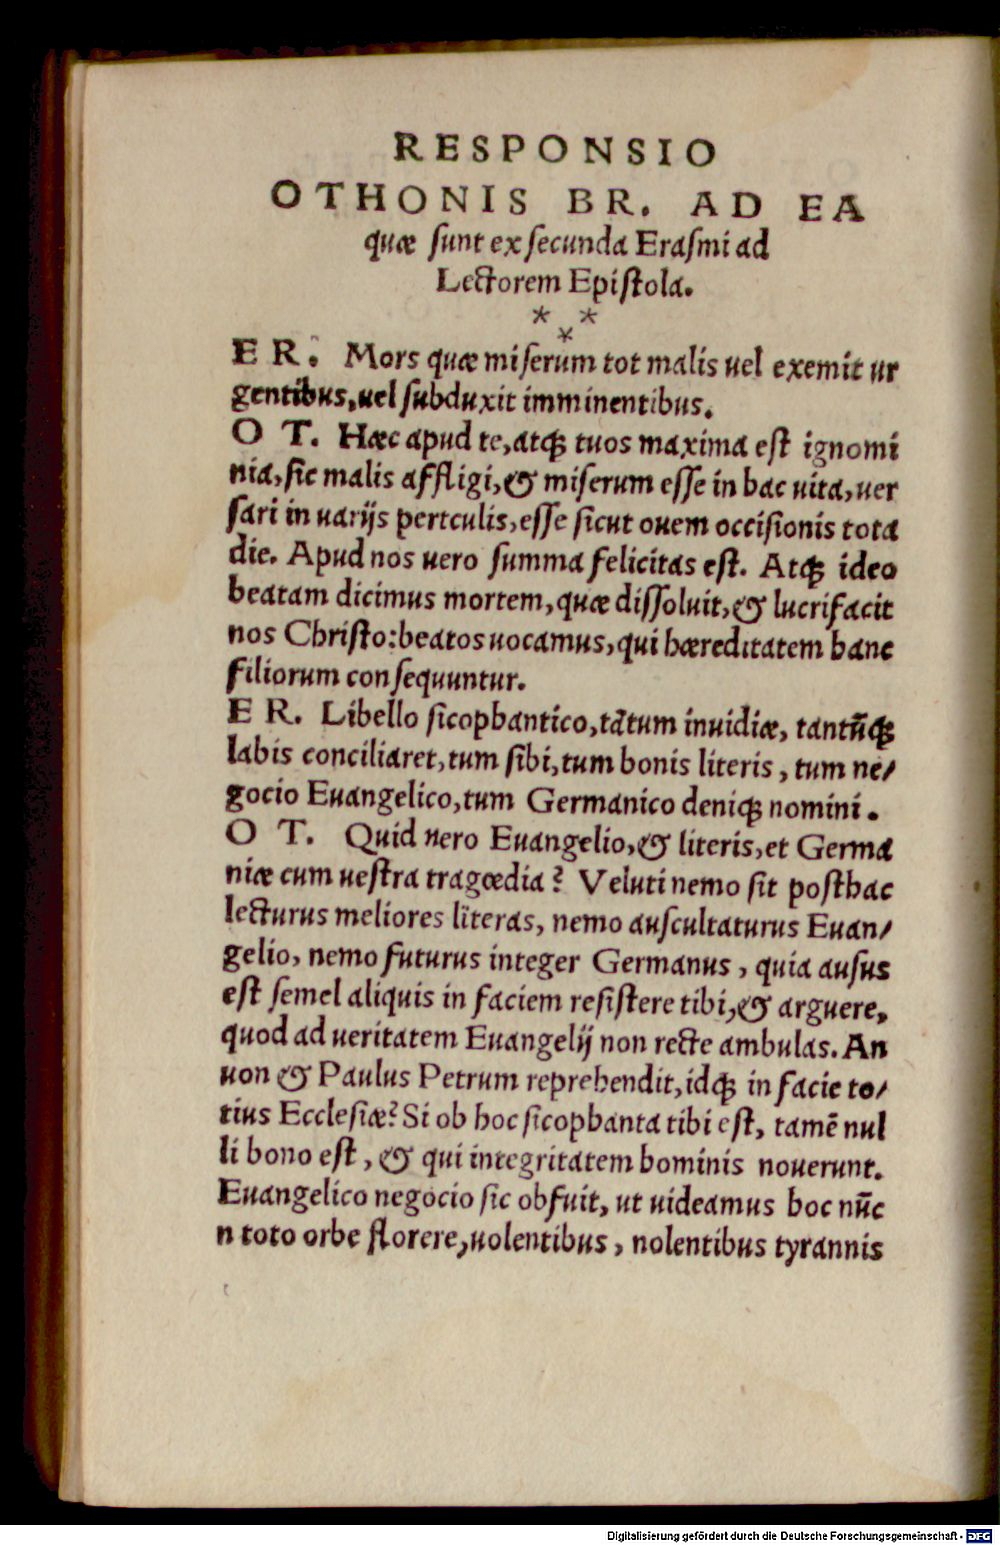 RESPONSIO
OTHONIS BR. AD EA
quæ ſunt ex ſecunda Eraſmi ad
Lectorem Epiſtola.
* * *
ER. Mors quæ miſerum tot malis uel exemit ur
gentibus, uel ſubduxit imminentibus.
OT. Hæc apud te, atqꝫ tuos maxima eſt ignomi
nia, ſic malis affligi, & miſerum eſſe in hac uita, uer
ſari in uarijs pertculis, eſſe ſicut ouem occiſionis tota
die. Apud nos uero ſumma felicitas eſt. Atqꝫ ideo
beatam dicimus mortem, quæ diſſoluit, & lucrifacit
nos Chriſto: beatos uocamus, qui hæreditatem hanc
filiorum conſequuntur.
ER. Libello ſicophantico, tātum inuidiæ, tantūqꝫ
labis conciliaret, tum ſibi, tum bonis literis, tum ne/
gocio Euangelico, tum Germanico deniqꝫ nomini.
OT. Quid uero Euangelio, & literis, et Germa
niæ cum ueſtra tragœdia? Veluti nemo ſit poſthac
lecturus meliores literas, nemo auſcultaturus Euan/
gelio, nemo futurus integer Germanus, quia auſus
eſt ſemel aliquis in faciem reſiſtere tibi, & arguere,
quod ad ueritatem Euangelij non recte ambulas. An
non & Paulus Petrum reprehendit, idqꝫ in facie to/
tius Eccleſiæ? Si ob hoc ſicophanta tibi eſt, tamē nul
li bono eſt, & qui integritatem hominis nouerunt.
Euangelico negocio ſic obfuit, ut uideamus hoc nūc
n toto orbe florere, uolentibus, nolentibus tyrannis
Digitalisierung gefördert durch die Deutsche Forschungsgemeinschaft - DFG